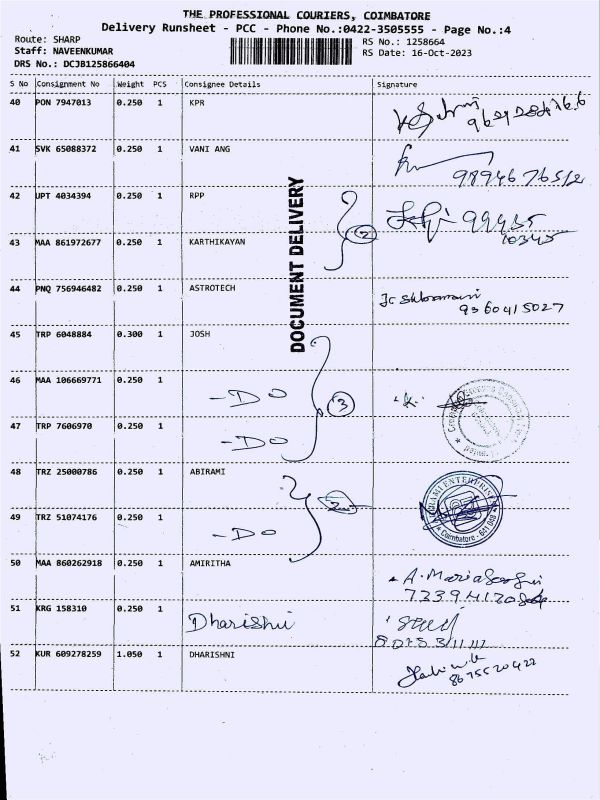 THE PROFESSIONAL COURIERS, COIMBATORE
Delivery Runsheet - PCC - Phone No.:0422-3505555 - Page No.:4
Route: SHARP
RS No.: 1258664
Staff: NAVEENKUMAR
RS Date: 16-Oct-2023
DRS No.: DCJB125866404
S No Consignment No Weight PCS Consignee Details Signature
40 PON 7947013 0.250 1 KPR
41 SVK 65088372 0.250 1 VANI ANG
9894676512
42 UPT 4034394 0.250 1 RPP
2
99435
10345
43 MAA 861972677 0.250 1 KARTHIKAYAN
DOCUMENT DELIVERY
44 PNQ 756946482 0.250 1 ASTROTECH
9360415027
45 TRP 6048884 0.300 1 JOSH
46 MAA 106669771 0.250 1
-DO 3
47 TRP 7606970 0.250 1
-DO
48 TRZ 25000786 0.250 1 ABIRAMI
2
ENTERPRISES
Coimbatore - 641
49 TRZ 51074176 0.250 1
-DO
50 MAA 860262918 0.250 1 AMIRITHA
51 KRG 158310 0.250 1
Dharishni
52 KUR 609278259 1.050 1 DHARISHNI
8675520422